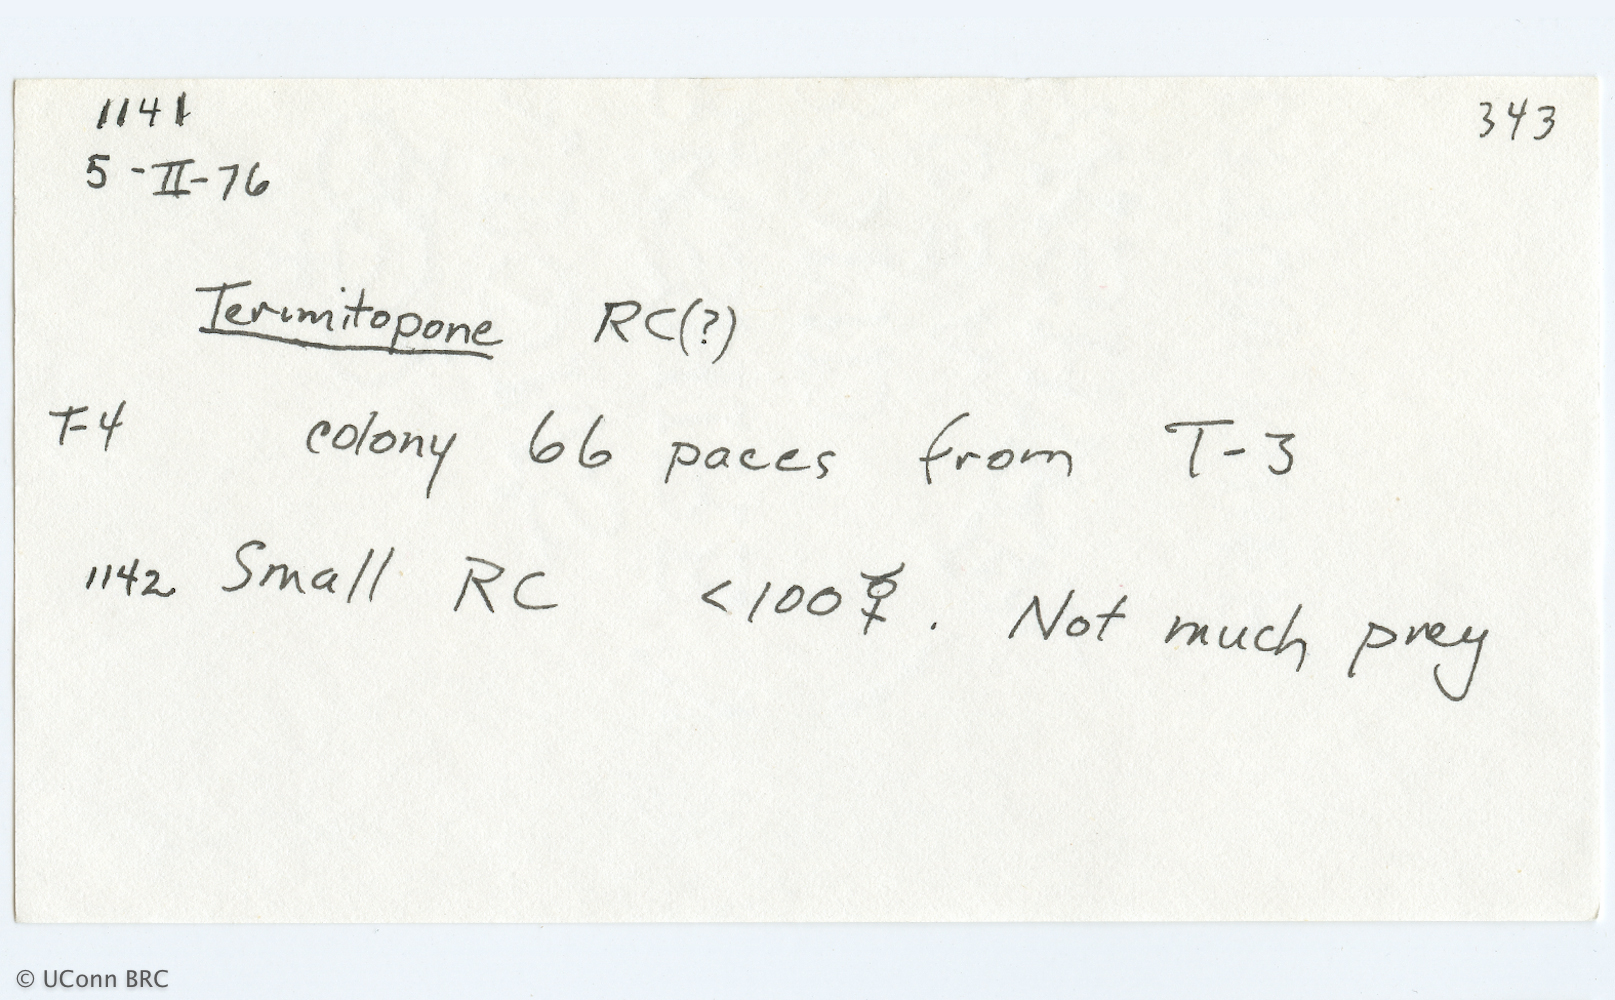 1141
343
5-II-76
Termitopone RC(?)
T-4 colony 66 paces from T-3
1142 Small RC <100 ☿. Not much prey
© UConn BRC